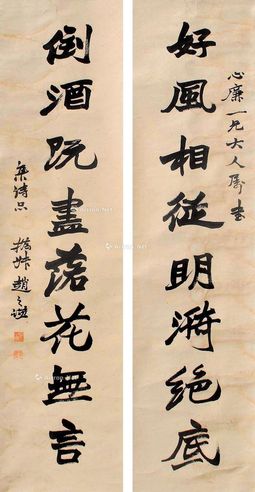 心廉一兄大人屬書
好風相從明漪絕底
倒酒既盡落花無言
集詩品 撝叔趙之謙